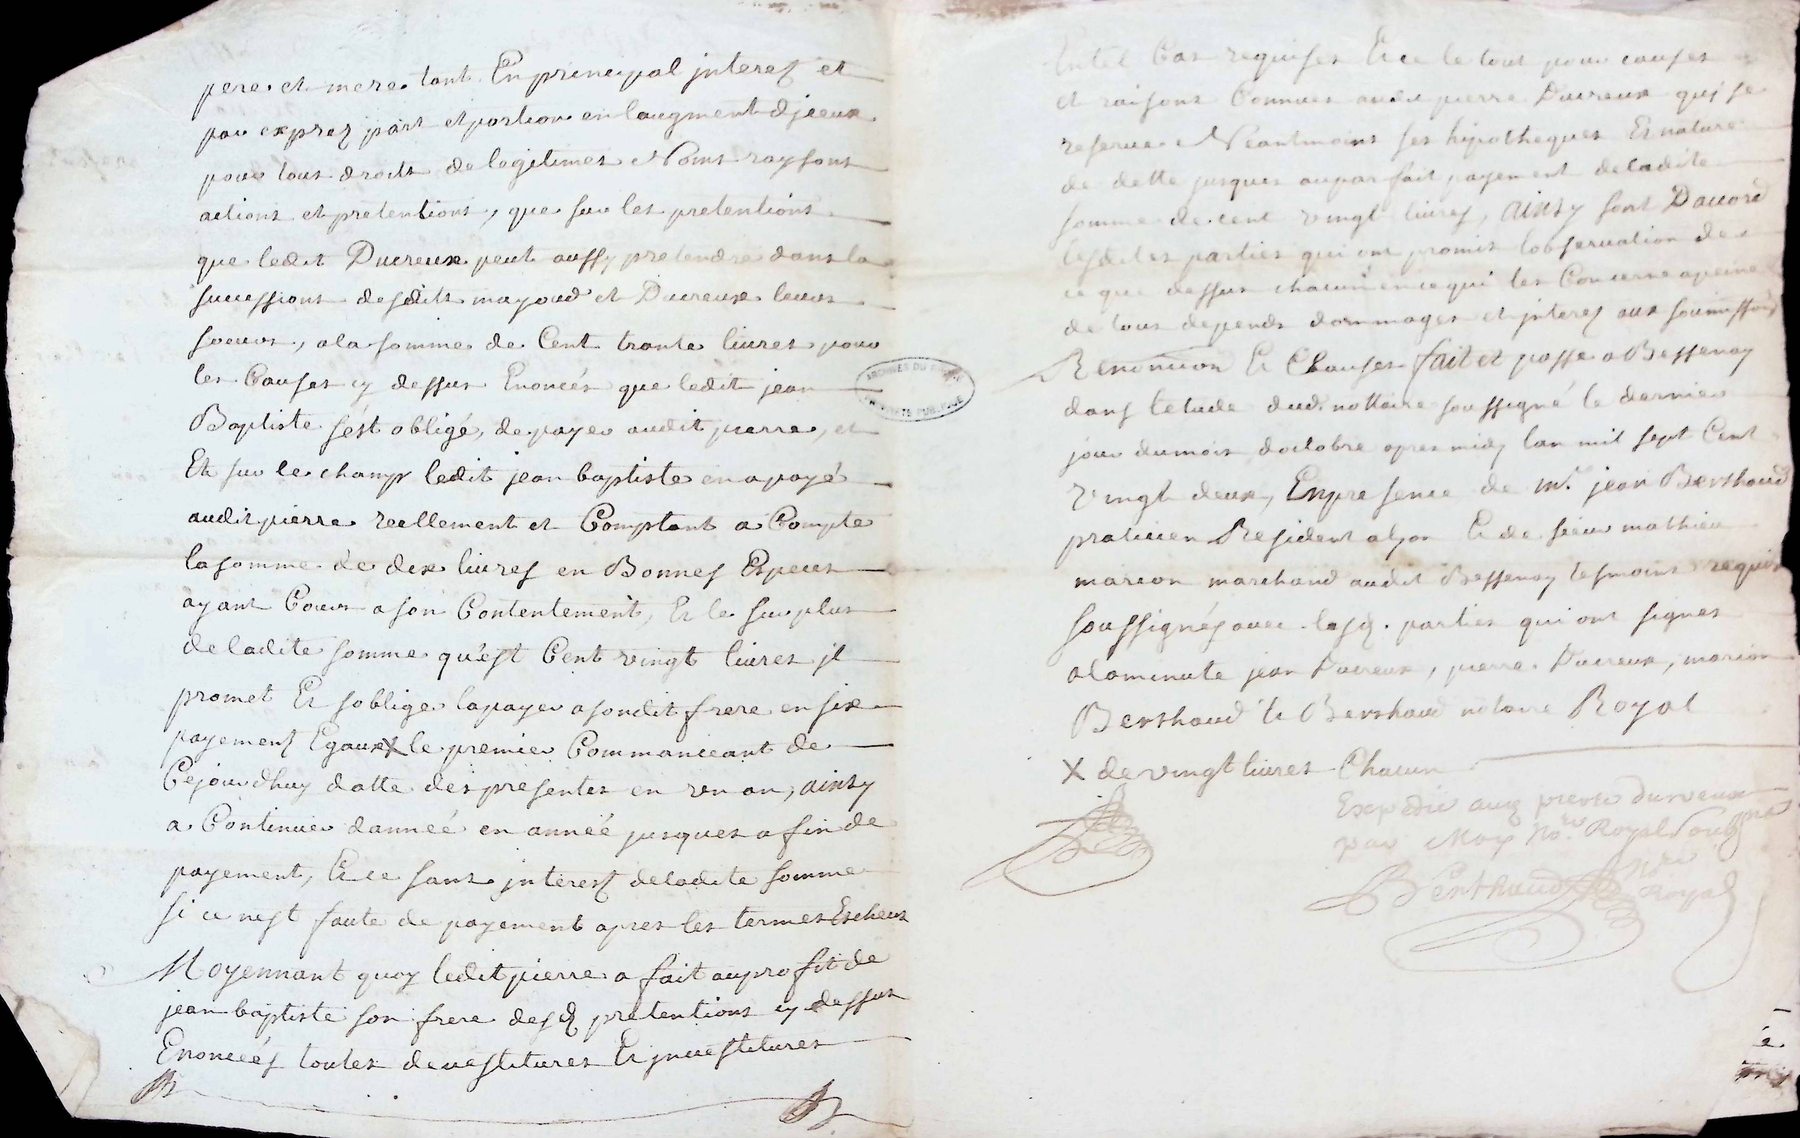 pere et mere tant En principal jnterez et
par exprez part et portion en laugment djceux
pour tous droits de legitimes Noms raysons
actions et pretentions, que sur les pretentions
que ledit Ducreux peut aussy pretendre dans la
successions desdits mayoud et Ducreux leurs
soeurs, a la somme de Cent trante livres pour
les Causes cy dessus Enoncés que ledit jean
Baptiste sést obligé, de payer audit pierre, et
Et sur le champ ledit jean baptiste en a payé
audit pierre reellement et Comptant a Compte
la somme de dix livres en Bonnes Especes
ayant Cours a son Contentement, Et le surplus
de ladite somme qu'est Cent vingt livres jl
promet Et soblige la payer a sondit frere en six
payements Egaux X le premier Commanceant de
Cejourdhuy datte des presentes en un an, ainsy
a Continuer danneé en anneé jusques a fin de
payement, Et ce sans jnterest de ladite somme
si ce nest faute de payement apres les termes Escheux
Moyennant quoy ledit pierre a fait au profit de
jean baptiste son frere desd pretentions cy dessus
Enoncéés toutes devestitures Et jnvestitures
En tel Cas requises Et ce le tout pour causes
et raisons Connues audit pierre Ducreux qui se
reserve Néantmoins ses hipotheques Et nature
de dette jusques au parfait payement de ladite
somme de cent vingt livres, ainsy sont Daccord
lesdites parties qui ont promis lobservation de
ce que dessus chacun en ce qui les Concerne a peine
de tous depends dommages et jnterez aux soumissions
Renontion Et Clauses fait et passe a Bessenay
dans letude dud. nottaire soussigné le dernier
jour du mois doctobre apres midy lan mil sept Cent
vingt deux, En presence de mr. jean Berthaud
praticien Resident a lyon Et de sieur mathieu
marion marchand audit Bessenay tesmoins requis
soussignés avec lesd. parties qui ont signes
a la minute jean Ducreux, pierre Ducreux, marion
Berthaud Et Berthaud notaire Royal
X de vingt livres Chacun
Expedié aud pierre Ducreux
par Moy Nore Royal Soubsigné
Berthaud Nre
Royal
ARCHIVES DU RHONE